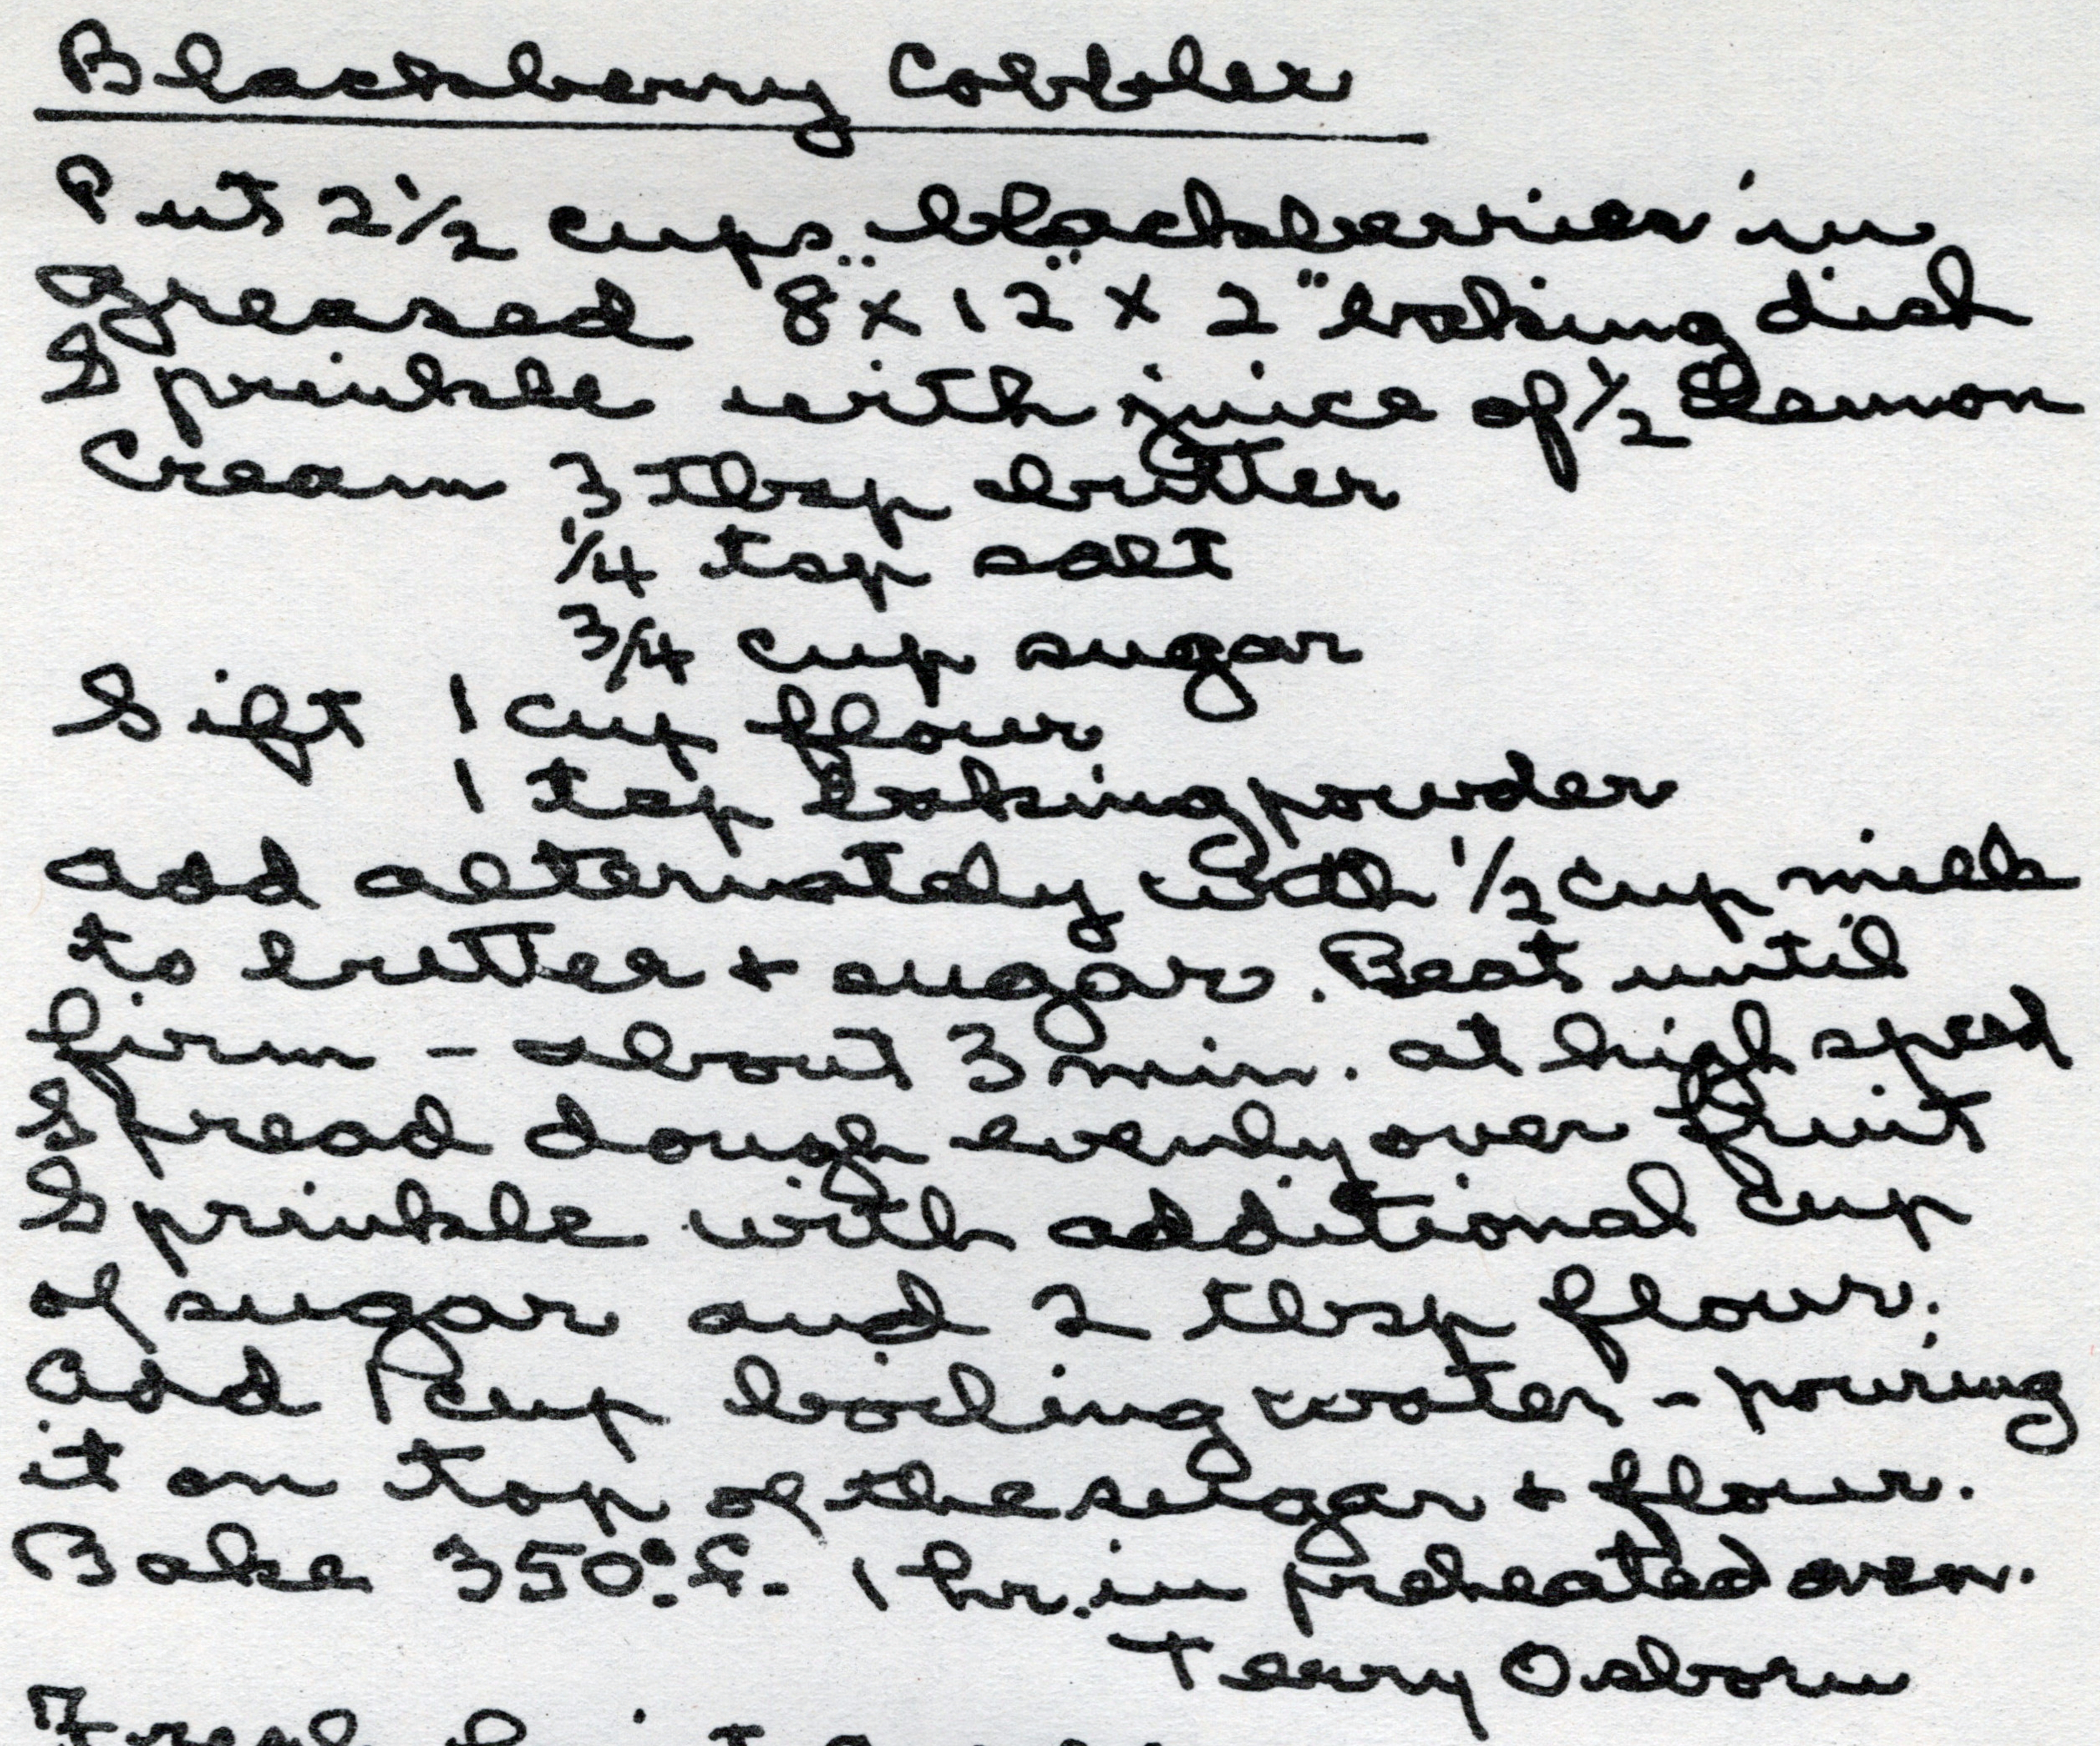 Blackberry Cobbler
Put 2 1/2 cups blackberries in
greased 8" x 12" x 2" baking dish
Sprinkle with juice of 1/2 lemon
Cream 3 tbsp butter
1/4 tsp salt
3/4 cup sugar
Sift 1 cup flour
1 tsp baking powder
add alternately with 1/2 cup milk
to butter + sugar. Beat until
firm - about 3 min. at high speed
Spread dough evenly over fruit
Sprinkle with additional cup
of sugar and 2 tbsp flour.
Add 1 cup boiling water - pouring
it on top of the sugar + flour.
Bake 350° F. 1 hr. in preheated oven.
Terry Osborn